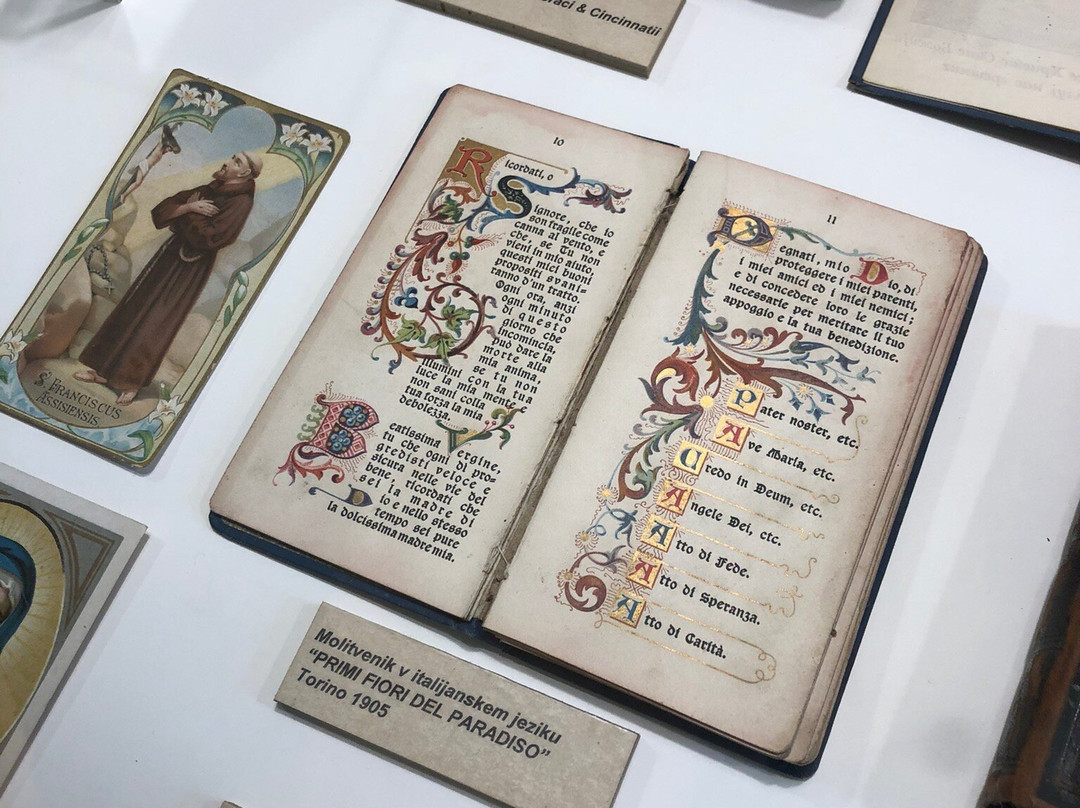 & Cincinnatii
S. FRANCISCUS
ASSISIENSIS.
10
Ricordati, o
Signore, che io
son fragile come
canna al vento, e
che, se Tu non
vieni in mio aiuto,
questi miei buoni
propositi svani-
ranno d'un tratto.
Ogni ora, anzi
ogni minuto
di questo
giorno che
incomincia,
può dare la
morte alla
mia anima,
se tu non
illumini con la tua
luce la mia mente,
non sani colla
tua forza la mia
debolezza.
Beatissima Vergine,
tu che ogni dì pro-
gredisti veloce e
sicura nelle vie del
bene, ricordati che
sei la madre di
Dio e nello stesso
tempo sei pure
la dolcissima madre mia.
11
Degnati, mio Dio, di
proteggere i miei parenti,
i miei amici ed i miei nemici;
e di concedere loro le grazie
necessarie per meritare il tuo
appoggio e la tua benedizione.
Pater noster, etc.
Ave Maria, etc.
Credo in Deum, etc.
Angele Dei, etc.
Atto di Fede.
Atto di Speranza.
Atto di Carità.
Molitvenik v italijanskem jeziku
“PRIMI FIORI DEL PARADISO”
Torino 1905